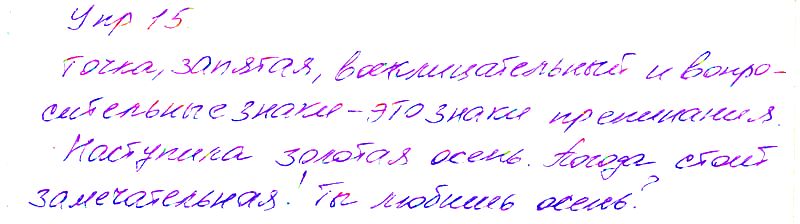 Упр 15
Точка, запятая, восклицательный и вопро-
сительные знаки - это знаки препинания.
Наступила золотая осень. Погода стоит
замечательная! Ты любишь осень?